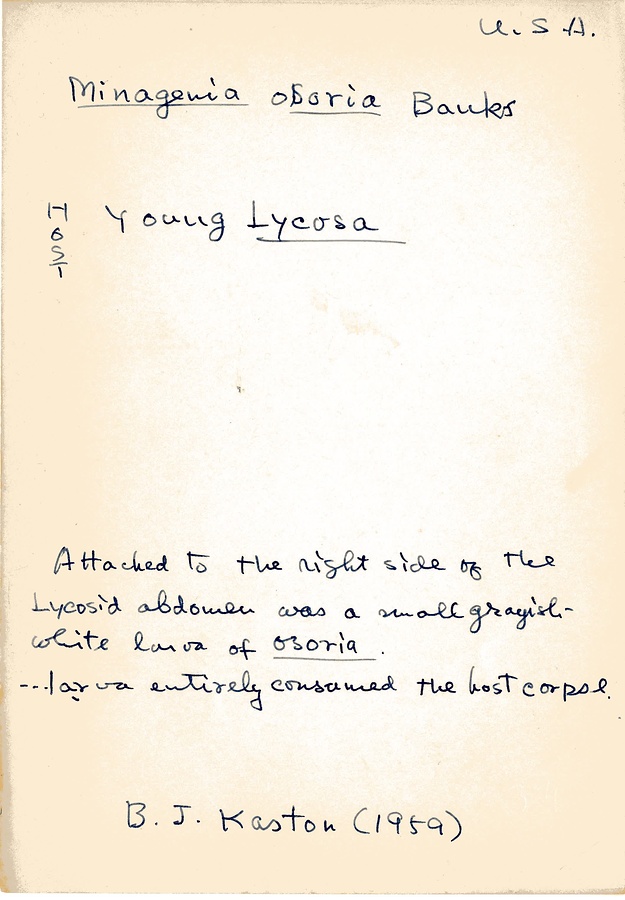 U.S.A.
Minagenia osoria Banks
HOST Young Lycosa
Attached to the right side of the
Lycosid abdomen was a small grayish-
white larva of osoria.
---larva entirely consumed the host corpse.
B. J. Kaston (1959)